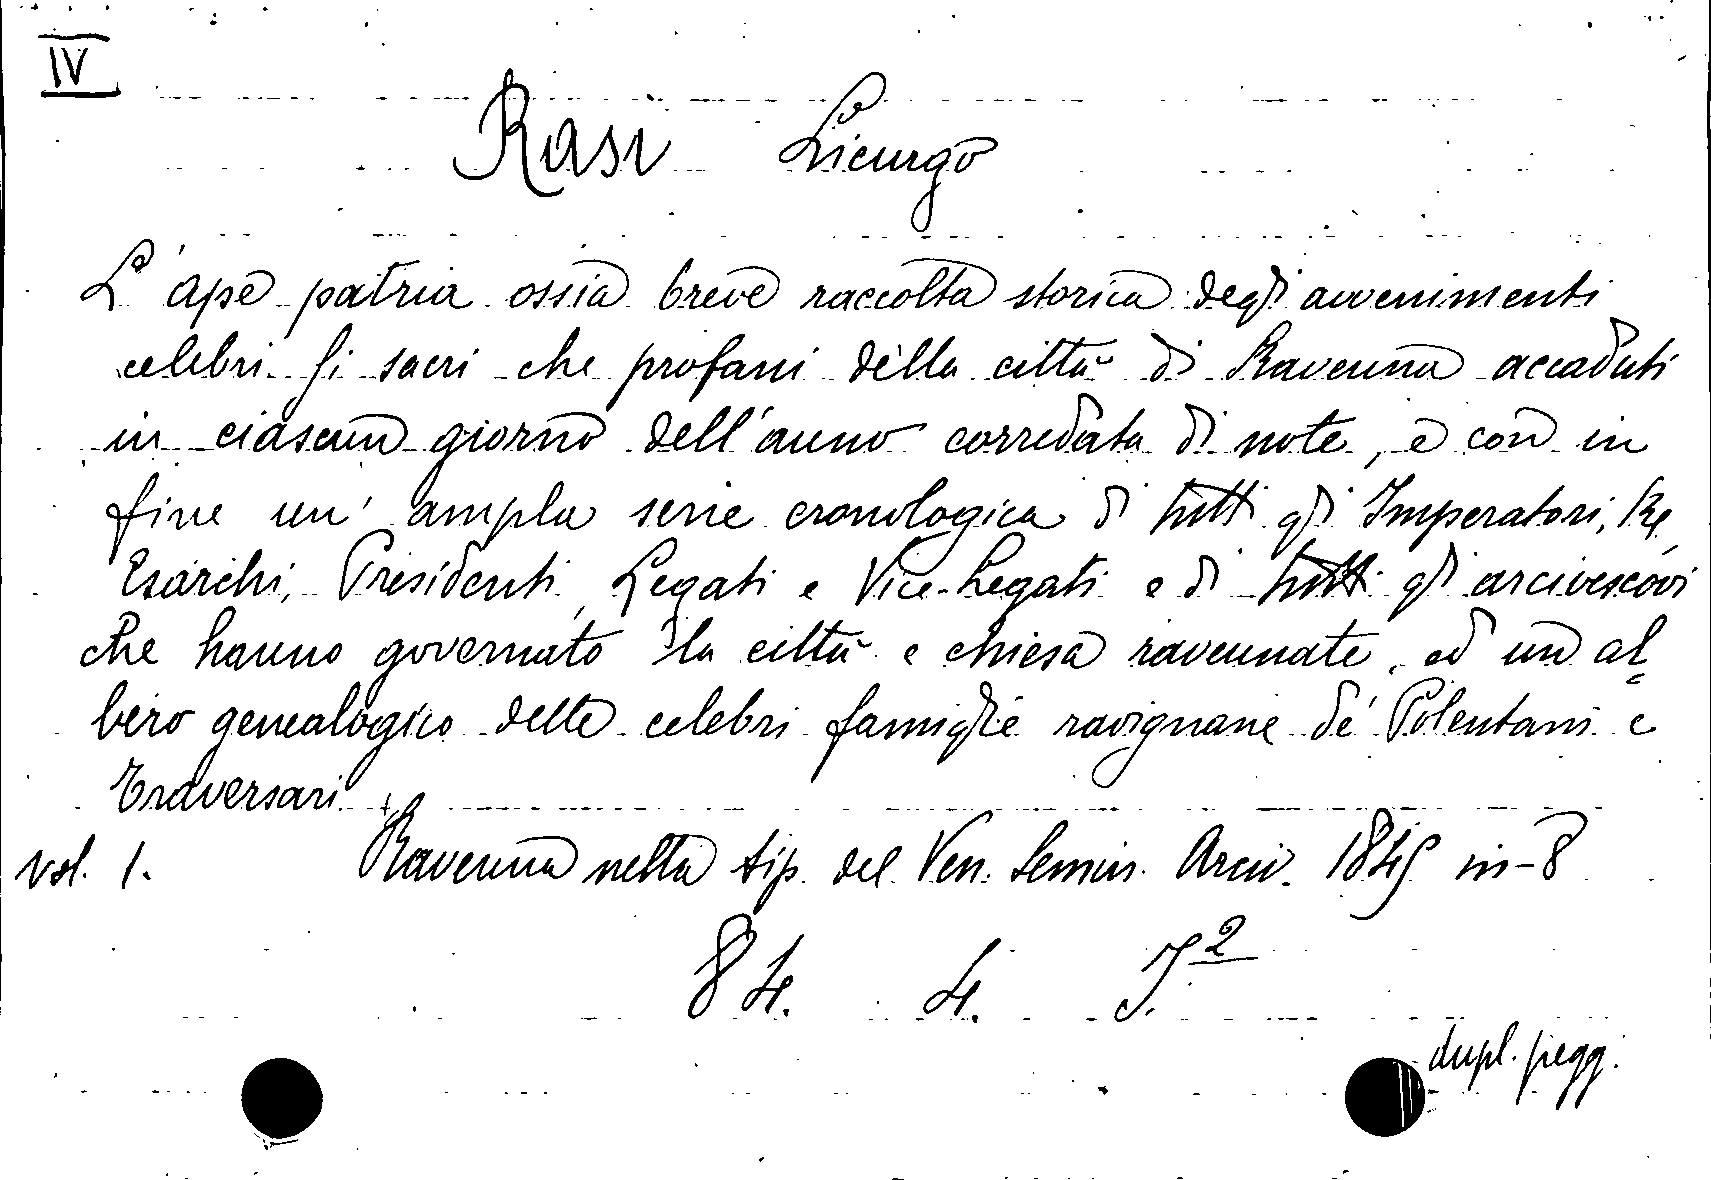 IV
Rasi Licurgo
L'ape patria ossia breve raccolta storica degli avvenimenti
celebri si sacri che profani della città di Ravenna accaduti
in ciascun giorno dell'anno corredata di note, e con in
fine un' ampla serie cronologica di tutti gli Imperatori, Re,
Esarchi, Presidenti, Legati e Vice-Legati e di tutti gli arcivescovi
che hanno governato la città e chiesa ravennate, ed un al=
bero genealogico delle celebri famiglie ravignane de' Polentani e
Traversari.
vol. 1. Ravenna nella tip. del Ven. Semin. Arciv. 1849 in-8
84. 4. J.2
dupl. pegg.